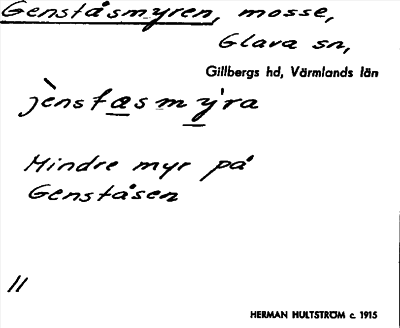 Genståsmyren, mosse,
Glava sn,
Gillbergs hd, Värmlands län
jènstæsmy̍ra
Mindre myr på
Genståsen
11
HERMAN HULTSTRÖM c. 1915